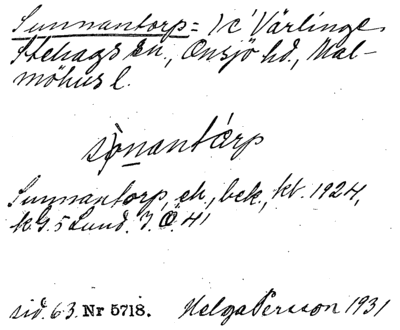 Sunnantorp = 1c' Värlinge
Stehags sn., Onsjö hd., Mal-
möhus l.
sònantǽrp
Sunnantorp, eh., bek., kt. 1924,
kG. 5 Lund. I. Ö. 41
sid. 63. Nr 5718. Helga Persson 1931